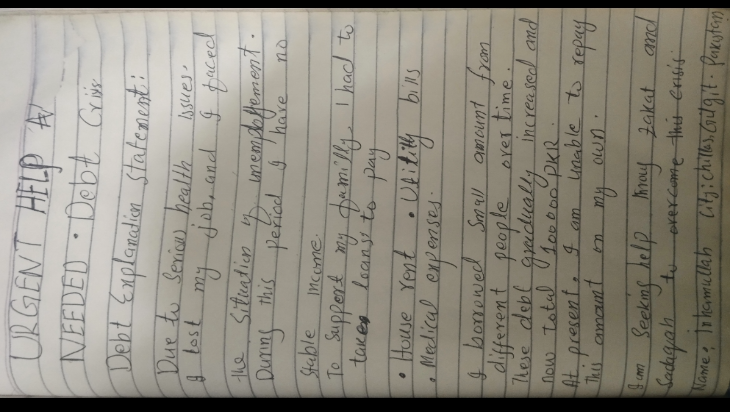 URGENT HELP
NEEDED • Debt Crisis
Debt Explanation Statement:
Due to Serious health issues.
I lost my job, and I faced
the Situation of unemployement.
During this period I have no
Stable income.
To support my familly, I had to
taken loans to pay
• House rent • Utitity bills
• Medical expenses.
I borrowed small amount from
different people over time.
These debt gradually increased and
now total 100000 PKR.
At present. I am unable to repay
this amount on my own.
I am Seeking help through zakat and
Sadaqah to overcome this crisis.
Name: Inhamullah City: chillas, Gilgit. Pakistan